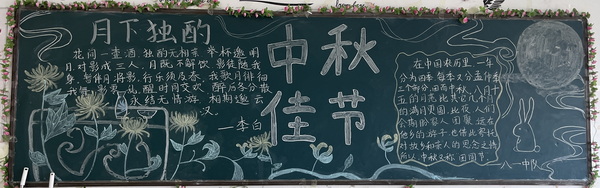 月下独酌
花间一壶酒 独酌无相亲 举杯邀明
月对影成三人,月既不解饮,影徒随我
身,暂伴月将影,行乐须及春,我歌月徘徊
我舞影零乱,醒时同交欢 醉后各分散
永结无情游 相期邈云
汉
—李白
中秋
佳节
在中国农历里,一年
分为四季每季又分孟仲季
三个部分,因而中秋,八月十
五的月亮比其它几个月
的满月更圆,此夜,人们
期盼家人团聚远在
他乡的游子 也借此寄托
对故乡和亲人的思念之情
所以中秋又称"团圆节"
八一中队